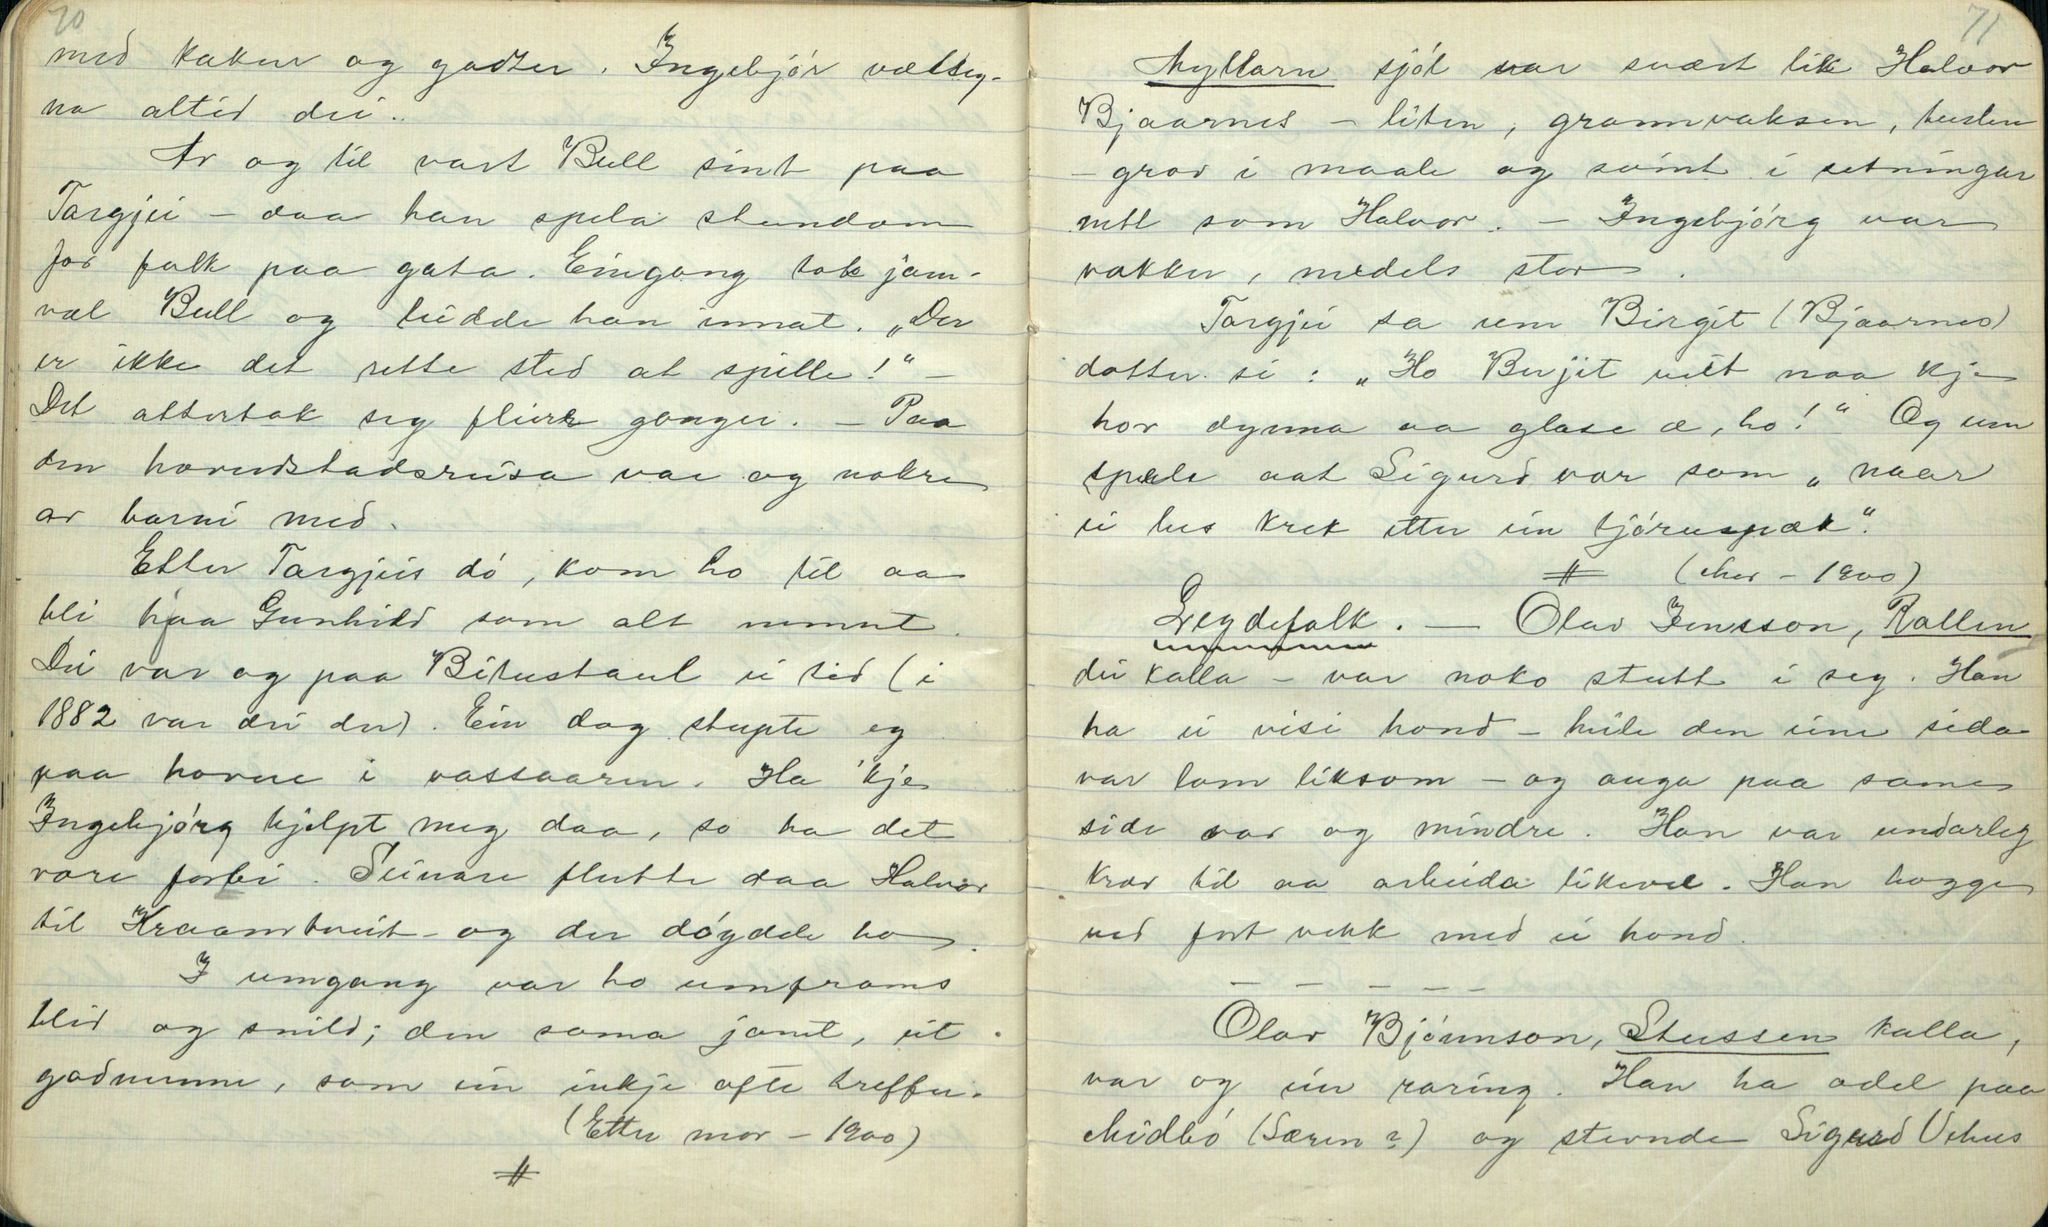 70
med kakur og godter. Ingebjór velsig-
na altid dei..
Av og til vart Bull sint paa
Targjei - daa han spela stundom
for folk paa gata. Eingong tok jam-
væl Bull og leidde han innat. „Der
er ikke det rette sted at spille!" -
Det attertok seg fleire gonger. - Paa
den hovudstadsreisa var og nokre
av barni med.
Etter Targjeis dó, kom ho til aa
bli hjaa Gunhild som alt nemnt.
Dei var og paa Bitustaul ei tid (i
1882 var dei der). Ein dag stupte eg
paa hovue i vassaaren. Ha 'kje
Ingebjórg hjelpt meg daa, so ha det
vore forbi. Seinare flutte daa Halvor
til Kraamtveit - og der dóydde ho.
I umgang var ho umframs
blid og snild; den sama jamt, eit
godmenne, som ein inkje ofte treffer.
(Etter mor - 1900)
#
71
Myllarn sjól var svært lik Halvor
Bjaarnes - liten, grannvaksen, tusten
- grov i maale og seint i setningar
nett som Halvor. - Ingebjórg var
vakker, medels stor.
Targjei sa um Birgit (Bjaarnes)
dotter si: „Ho Berjit veit naa kje
hor dynna aa glase æ, ho!" Og um
spele aat Sigurd var som „naar
ei lus krek etter ein tjóruspæk".
# (Mor - 1900)
Legdefolk. - Olav Jensson, Rallen
dei kalla - var noko stutt i seg. Han
ha ei visi hond - heile den eine sida
var lam liksom - og auga paa same
side var og mindre. Han var undarleg
krav til aa arbeida likevel. Han hogge
ved fort vekk med ei hond.
- - - - -
Olav Bjórnson, Stussen kalla,
var og ein raring. Han ha odel paa
Midbó (Særen?) og stevnde Sigurd Vehus